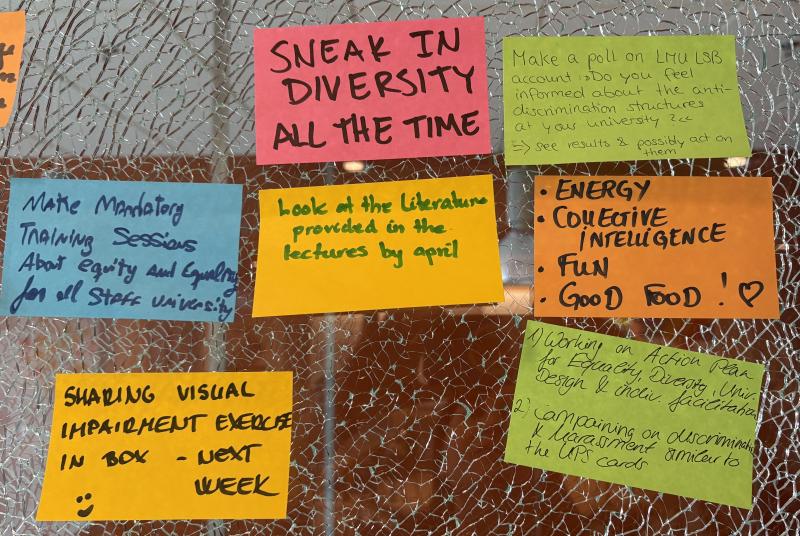 SNEAK IN
DIVERSITY
ALL THE TIME
Make a poll on LMU LSB
account: "Do you feel
informed about the anti-
discrimination structures
at your university?"
=> see results & possibly act on
them
Make Mandatory
Training Sessions
About equity and Equality
for all Staff university
Look at the Literature
provided in the
lectures by april
• ENERGY
• COLLECTIVE
INTELLIGENCE
• FUN
• GOOD FOOD! ♡
SHARING VISUAL
IMPAIRMENT EXERCISE
IN BOX - NEXT
WEEK
1) Working on Action Plan
for Equality, Diversity, Univ.
Design & indiv. facilitation
2) Campaining on discriminati
& Harassment similar to
the UPS cards